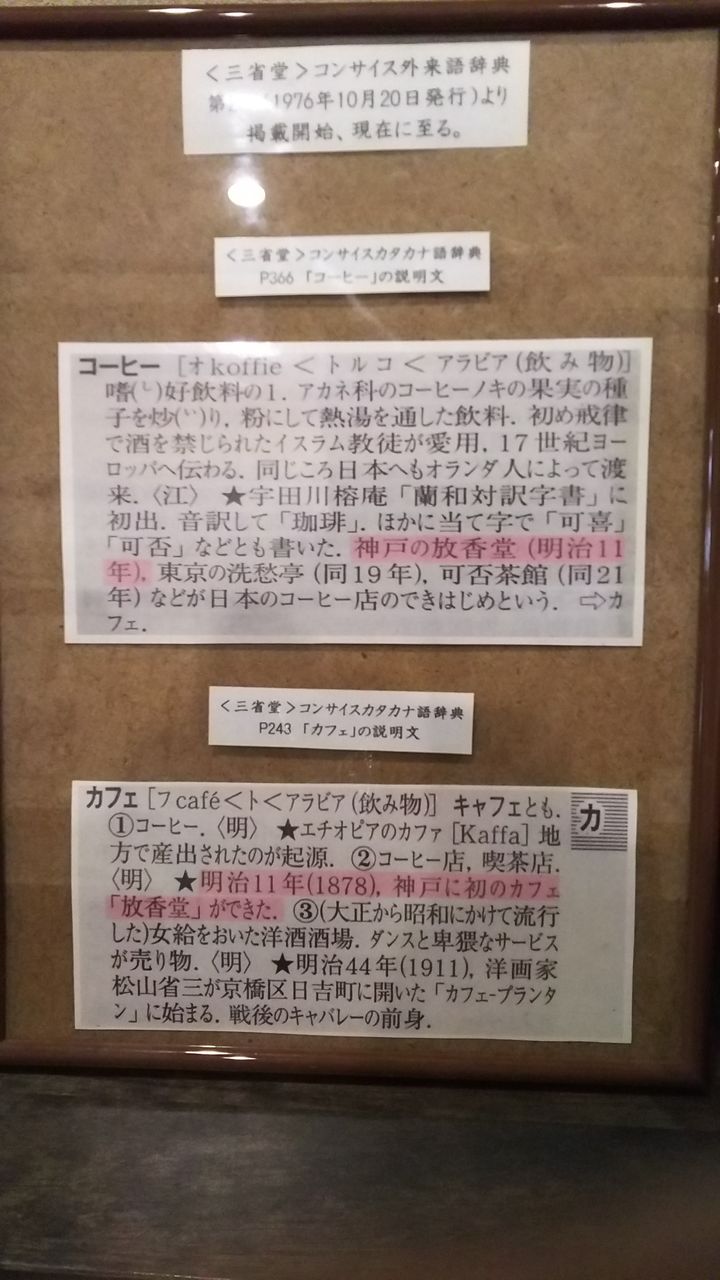 ＜三省堂＞コンサイス外来語辞典
第 (1976年10月20日発行)より
掲載開始、現在に至る。
＜三省堂＞コンサイスカタカナ語辞典
P366 「コーヒー」の説明文
コーヒー [オkoffie＜トルコ＜アラビア(飲み物)]
嗜(し)好飲料の1. アカネ科のコーヒーノキの果実の種
子を炒(い)り, 粉にして熱湯を通した飲料. 初め戒律
で酒を禁じられたイスラム教徒が愛用, 17世紀ヨー
ロッパへ伝わる. 同じころ日本へもオランダ人によって渡
来.〈江〉 ★宇田川榕庵「蘭和対訳字書」に
初出. 音訳して「珈琲」. ほかに当て字で「可喜」
「可否」などとも書いた. 神戸の放香堂 (明治11
年), 東京の洗愁亭 (同19年), 可否茶館 (同21
年) などが日本のコーヒー店のできはじめという. ⇨カ
フェ.
＜三省堂＞コンサイスカタカナ語辞典
P243 「カフェ」の説明文
カフェ [フcafé＜ト＜アラビア(飲み物)] キャフェとも.
カ
①コーヒー.〈明〉 ★エチオピアのカファ [Kaffa] 地
方で産出されたのが起源. ②コーヒー店, 喫茶店.
〈明〉 ★明治11年(1878), 神戸に初のカフェ
「放香堂」ができた. ③(大正から昭和にかけて流行
した)女給をおいた洋酒酒場. ダンスと卑猥なサービス
が売り物.〈明〉 ★明治44年(1911), 洋画家
松山省三が京橋区日吉町に開いた「カフェープランタ
ン」に始まる. 戦後のキャバレーの前身.